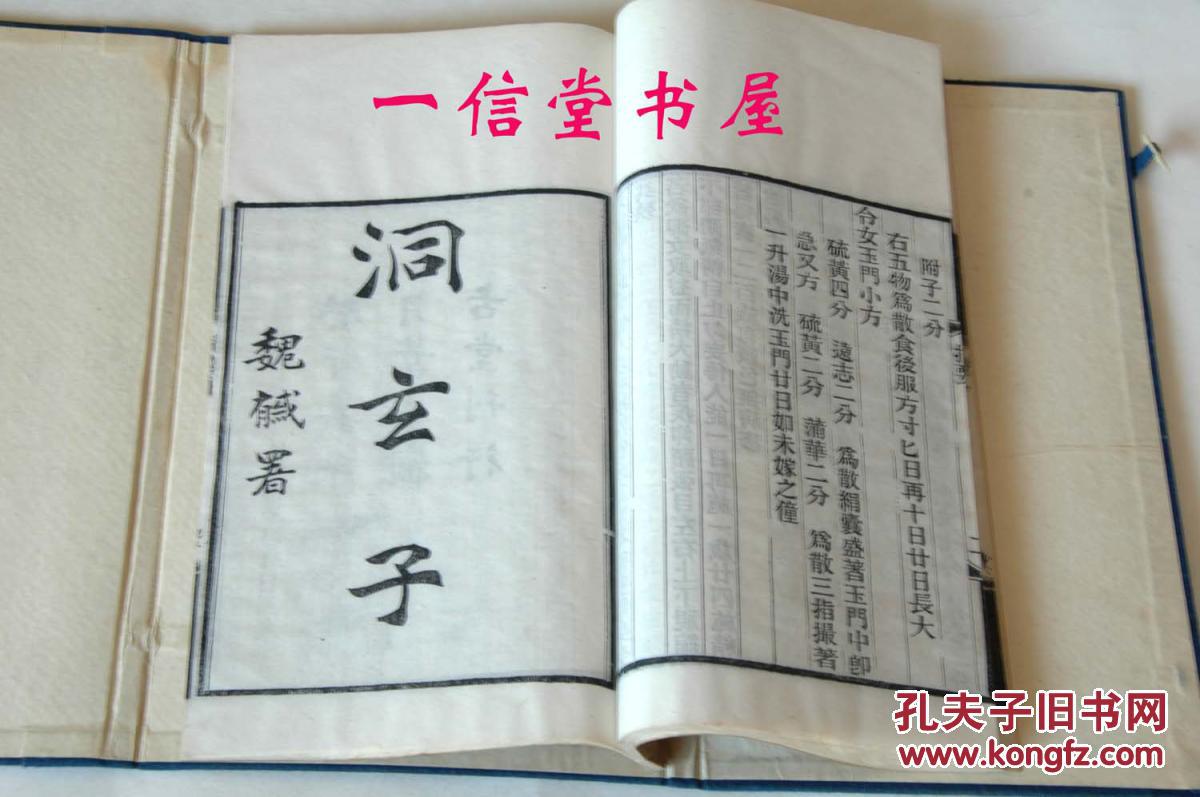 一信堂书屋
附子二分
右五物爲散食後服方寸匕日再十日廿日長大
令女玉門小方
硫黃四分 遠志二分 爲散絹囊盛著玉門中卽
急又方 硫黃二分 蒲華二分 爲散三指撮著
一升湯中洗玉門廿日如未嫁之僮
洞玄子
魏戫署
孔夫子旧书网
www.kongfz.com